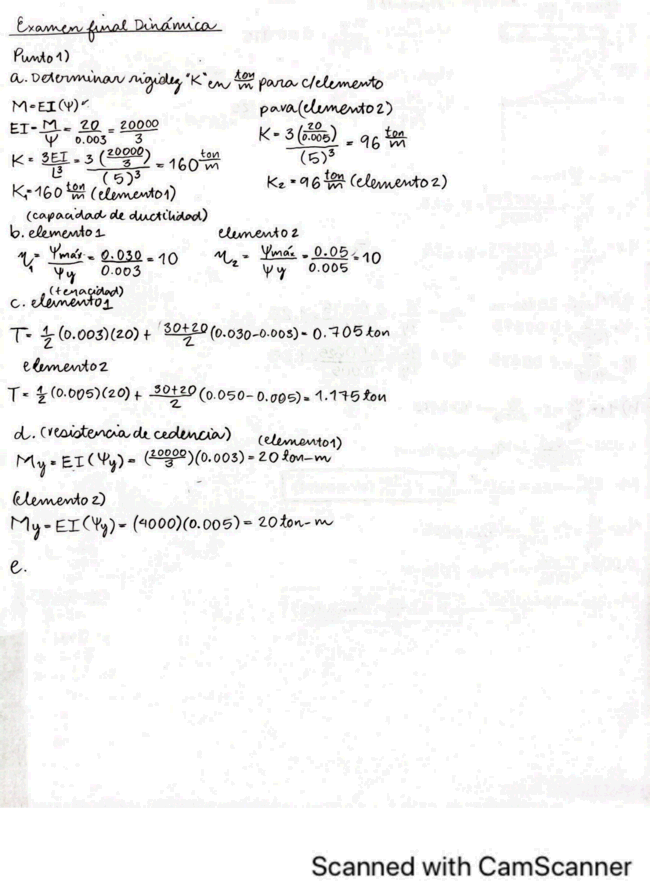 Examen final Dinámica
Punto 1)
a. Determinar rigidez "K" en ton/m para c/elemento
M=EI(Ψ) para(elemento 2)
EI=M/Ψ=20/0.003=20000/3 K=3(20/0.005)/(5)³=96 ton/m
K=3EI/L³=3(20000/3)/(5)³=160 ton/m
K₁=160 ton/m (elemento 1) K₂=96 ton/m (elemento 2)
(capacidad de ductilidad)
b. elemento 1 elemento 2
η₁=Ψmáx/Ψy=0.030/0.003=10 η₂=Ψmáx/Ψy=0.05/0.005=10
(tenacidad)
c. elemento 1
T=1/2(0.003)(20)+30+20/2(0.030-0.003)=0.705 ton
elemento 2
T=1/2(0.005)(20)+30+20/2(0.050-0.005)=1.175 ton
d. (resistencia de cedencia) (elemento 1)
My=EI(Ψy)=(20000/3)(0.003)=20 ton-m
(elemento 2)
My=EI(Ψy)=(4000)(0.005)=20 ton-m
e.
Scanned with CamScanner